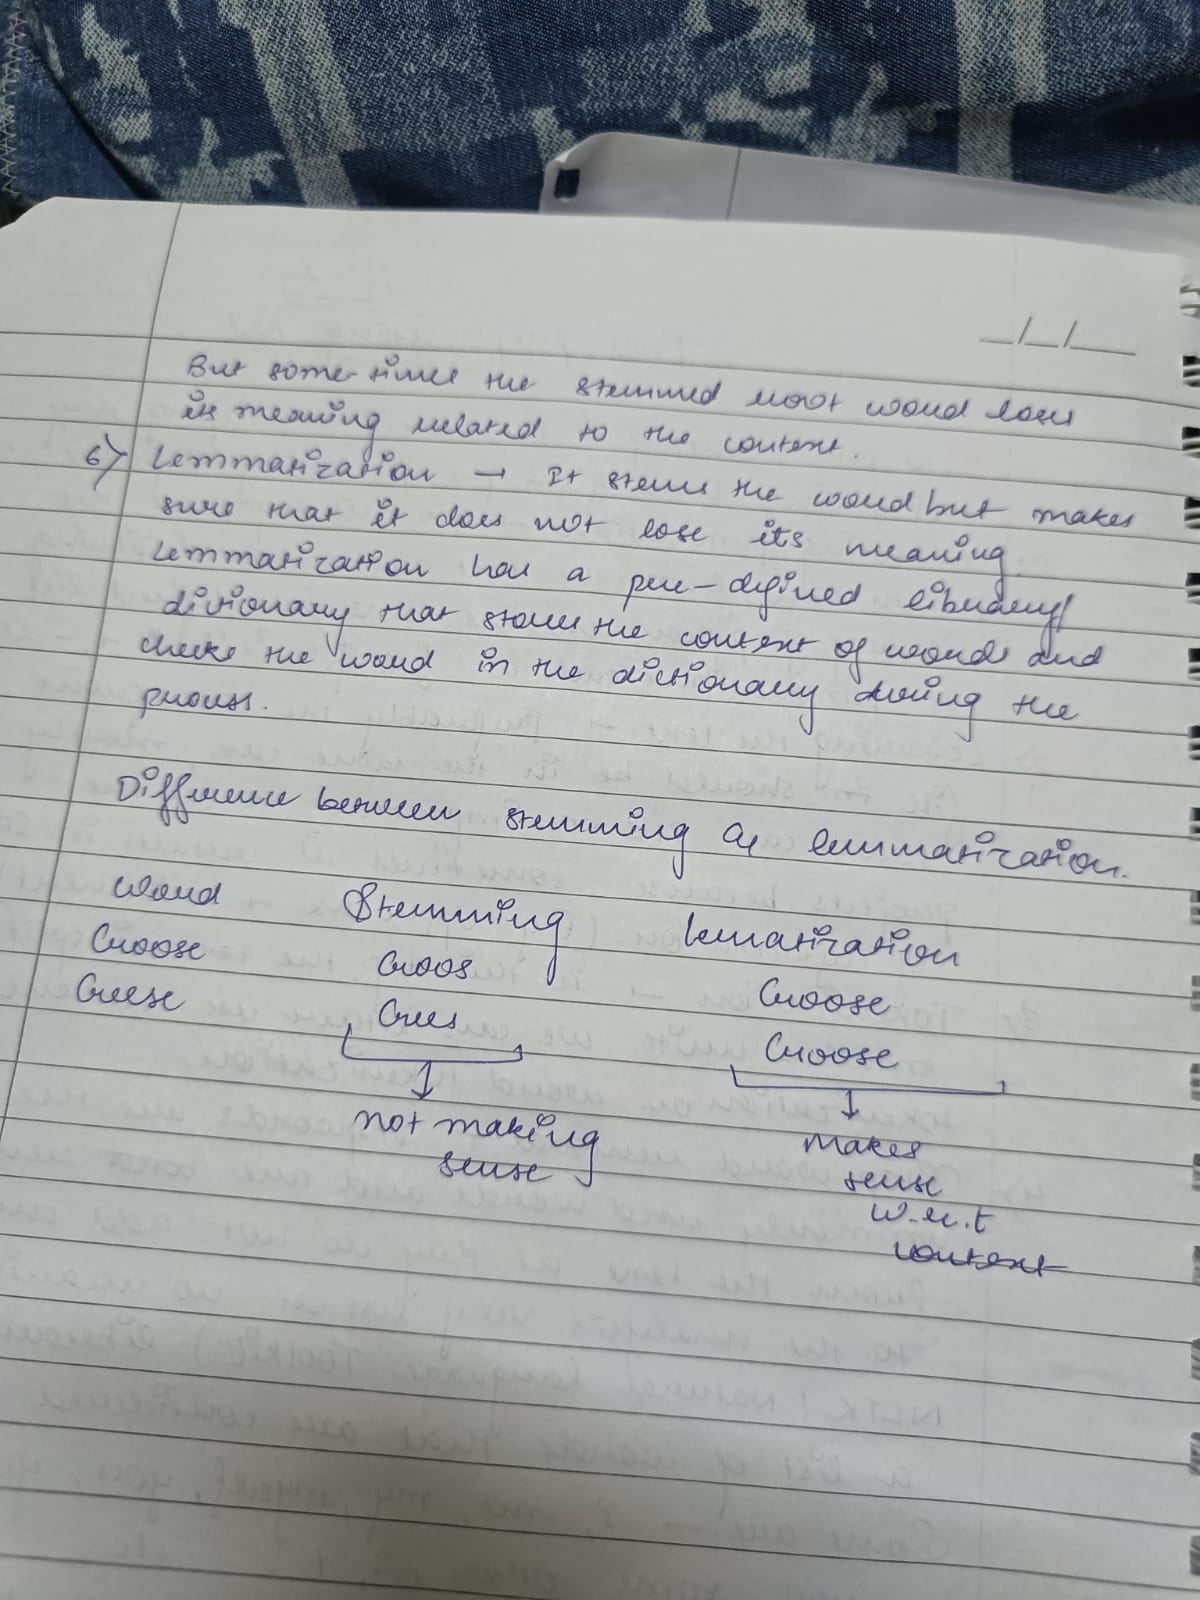 __/__/____
But some-times the stemmed root word loses
its meaning related to the context.
6) Lemmatization → It stems the word but makes
sure that it does not lose its meaning.
Lemmatization has a pre-defined library/
dictionary that stores the context of words and
checks the word in the dictionary during the
process.
Difference between stemming & lemmatization.
Word Stemming Lematization
Goose Goos Goose
Geese Gees Goose
not making Makes
sense sense
w.r.t
context